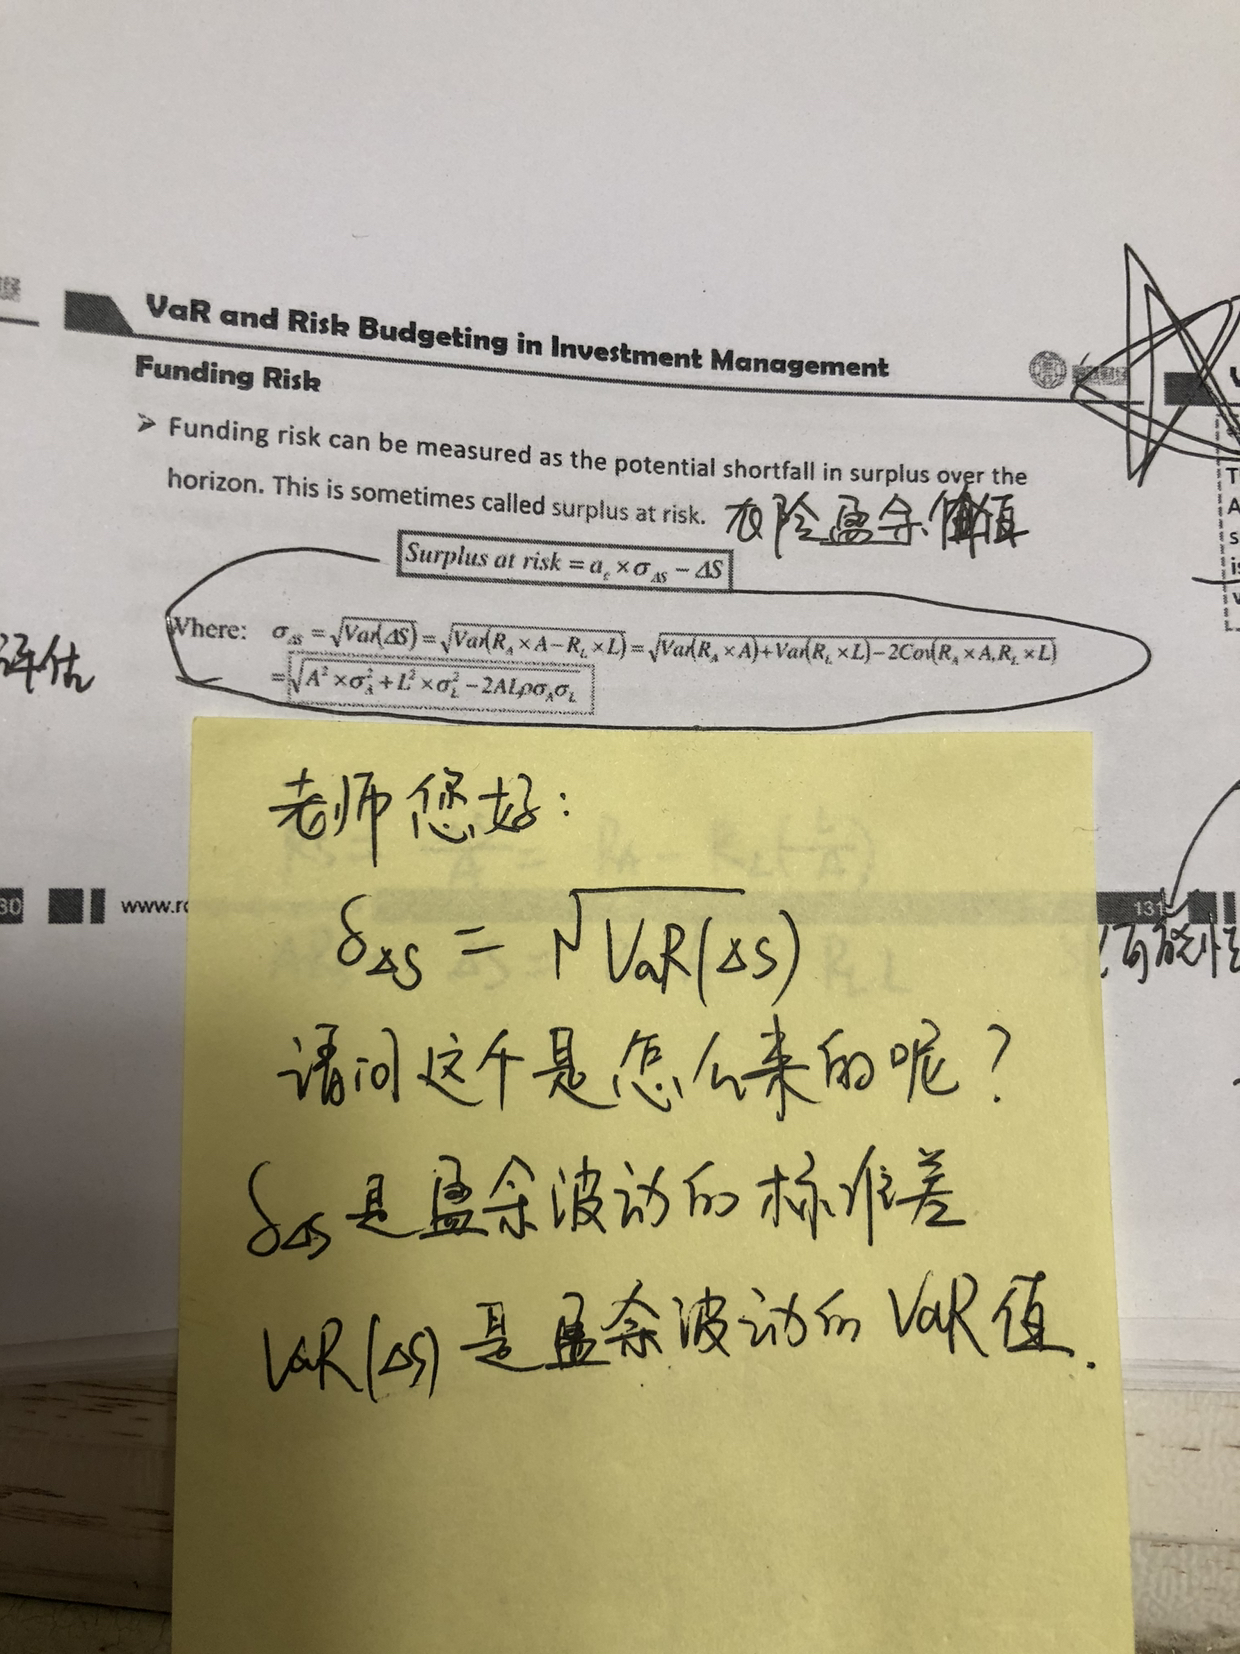 VaR and Risk Budgeting in Investment Management
Funding Risk
➢ Funding risk can be measured as the potential shortfall in surplus over the
horizon. This is sometimes called surplus at risk. 在险盈余价值
Surplus at risk = a_c × σ_ΔS − ΔS
Where: σ_ΔS = √Var(ΔS) = √Var(R_A × A − R_L × L) = √Var(R_A × A) + Var(R_L × L) − 2Cov(R_A × A, R_L × L)
= √A² × σ_A² + L² × σ_L² − 2ALρσ_Aσ_L
评估
老师您好：
δ_ΔS = √VaR(ΔS)
请问这个是怎么来的呢？
δ_ΔS 是盈余波动的标准差
VaR(ΔS) 是盈余波动的 VaR 值.
30
www.r
131